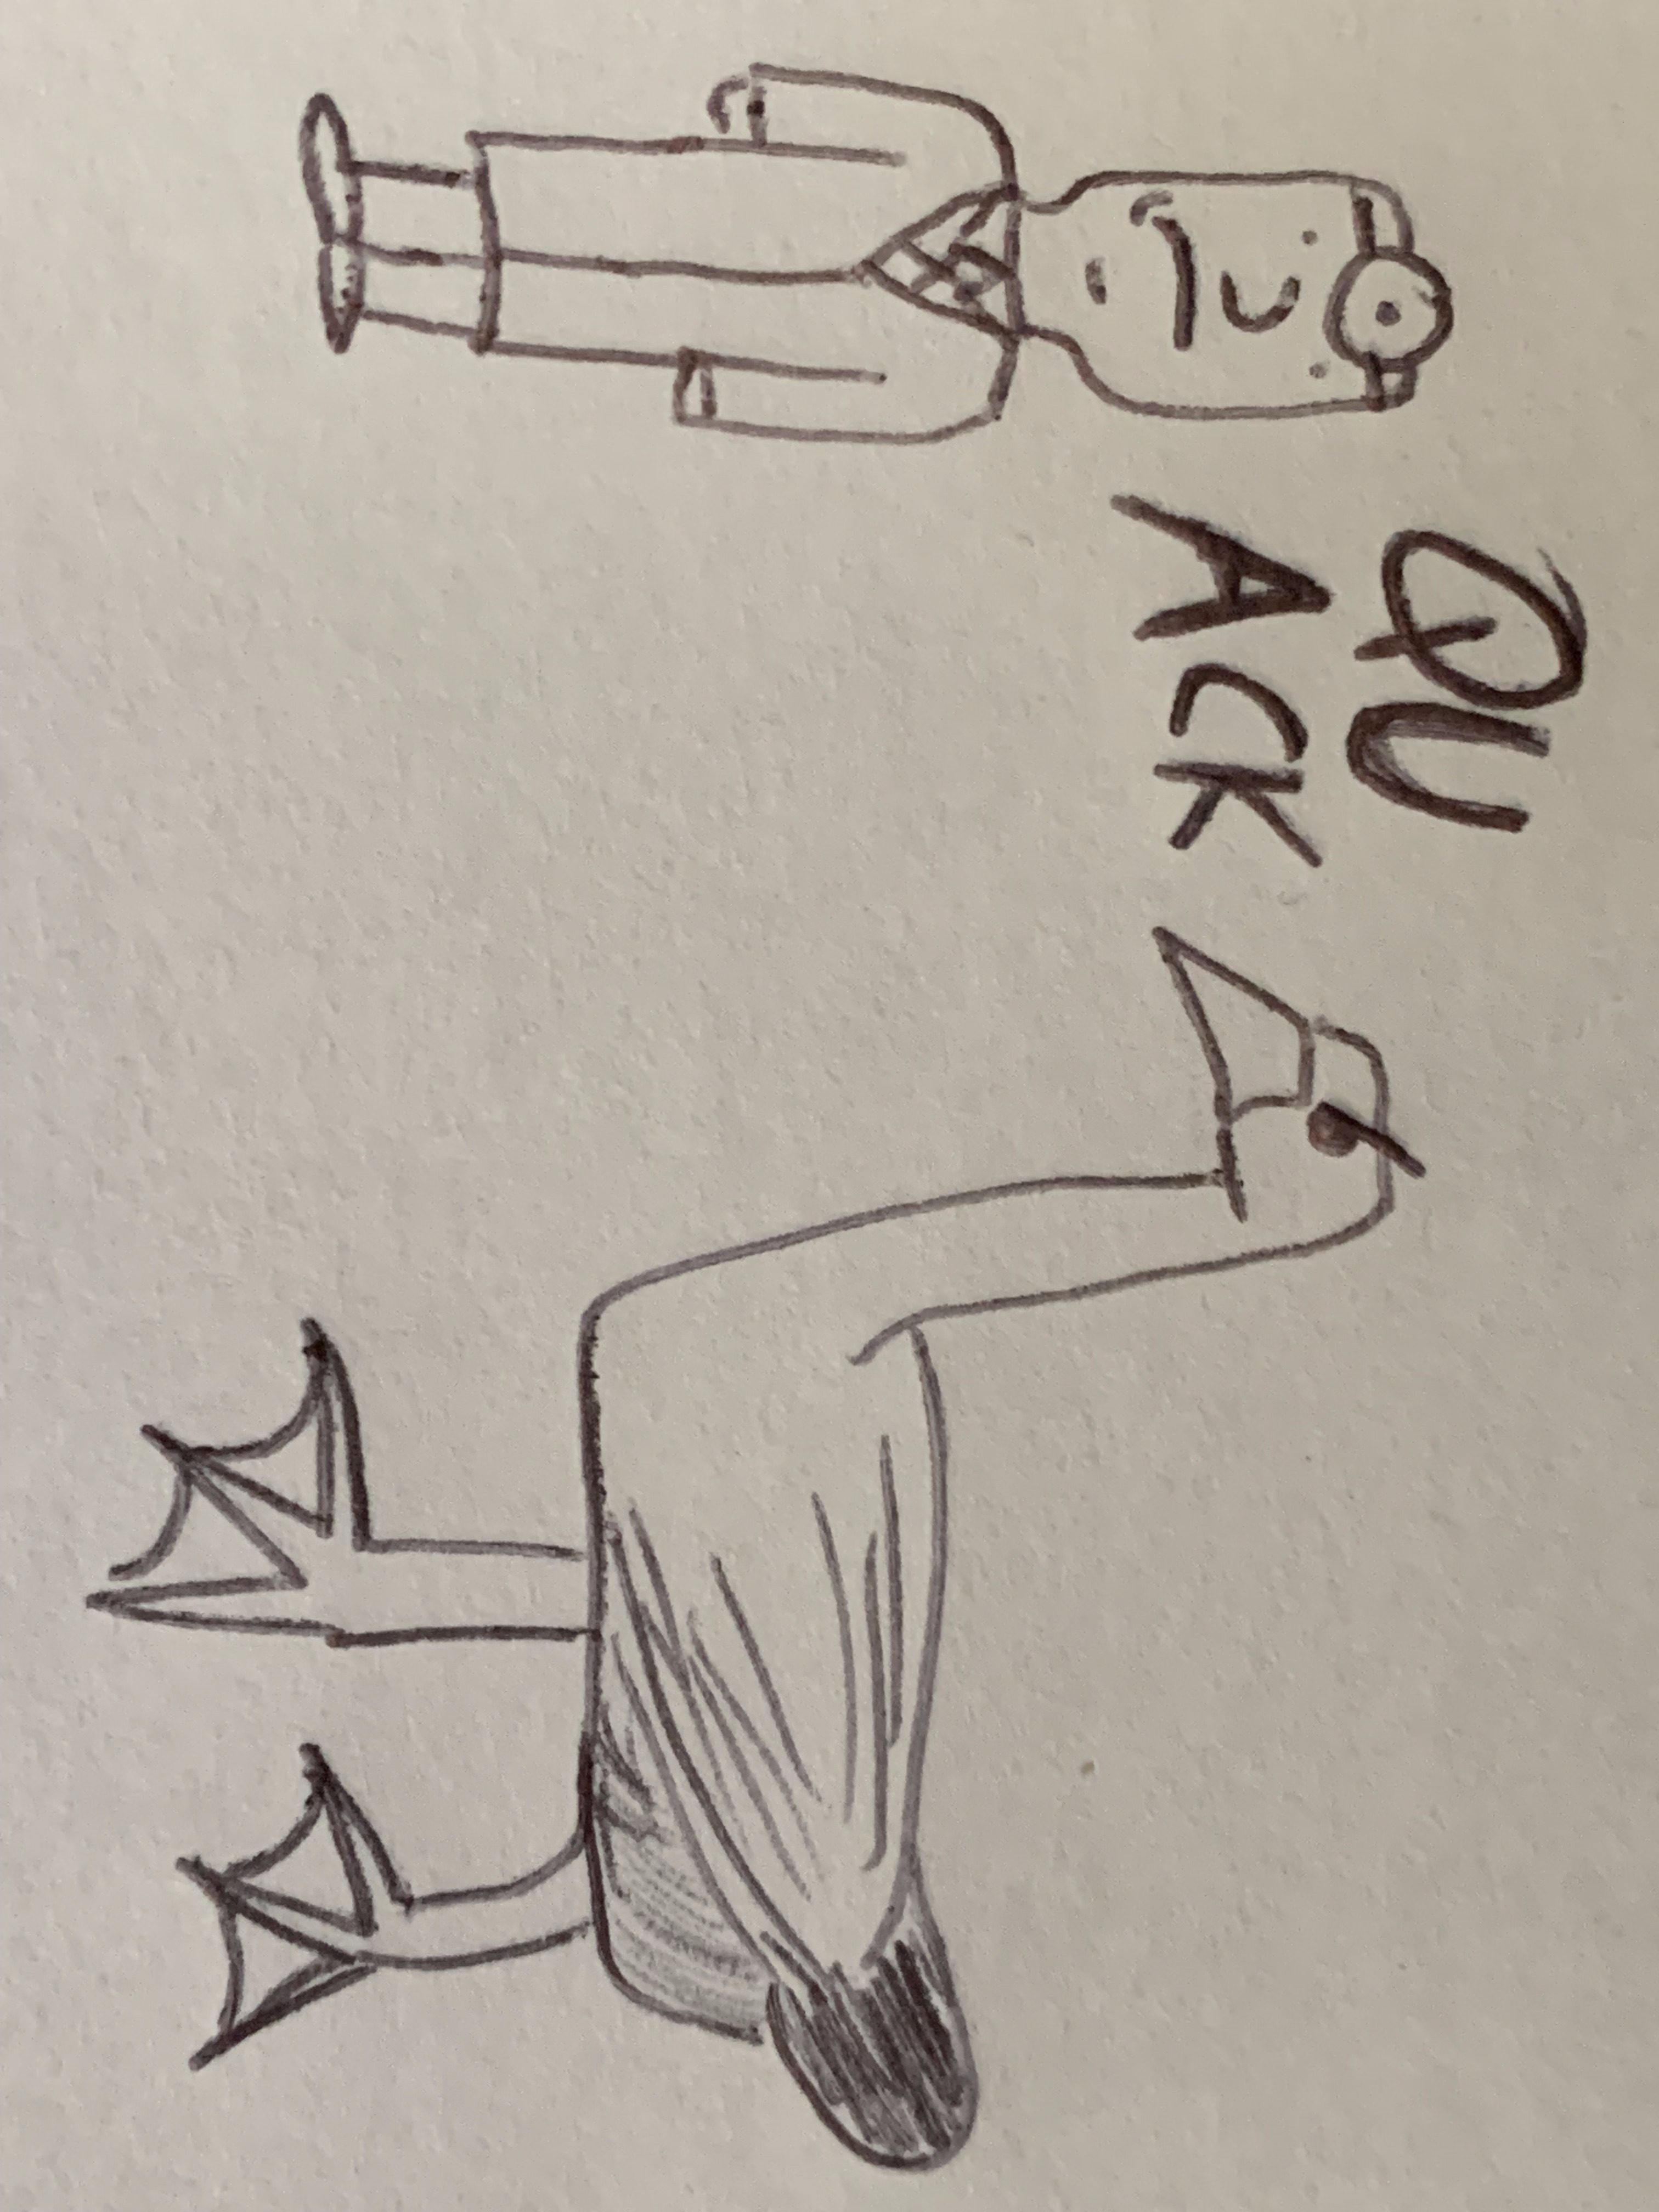 QU
ACK